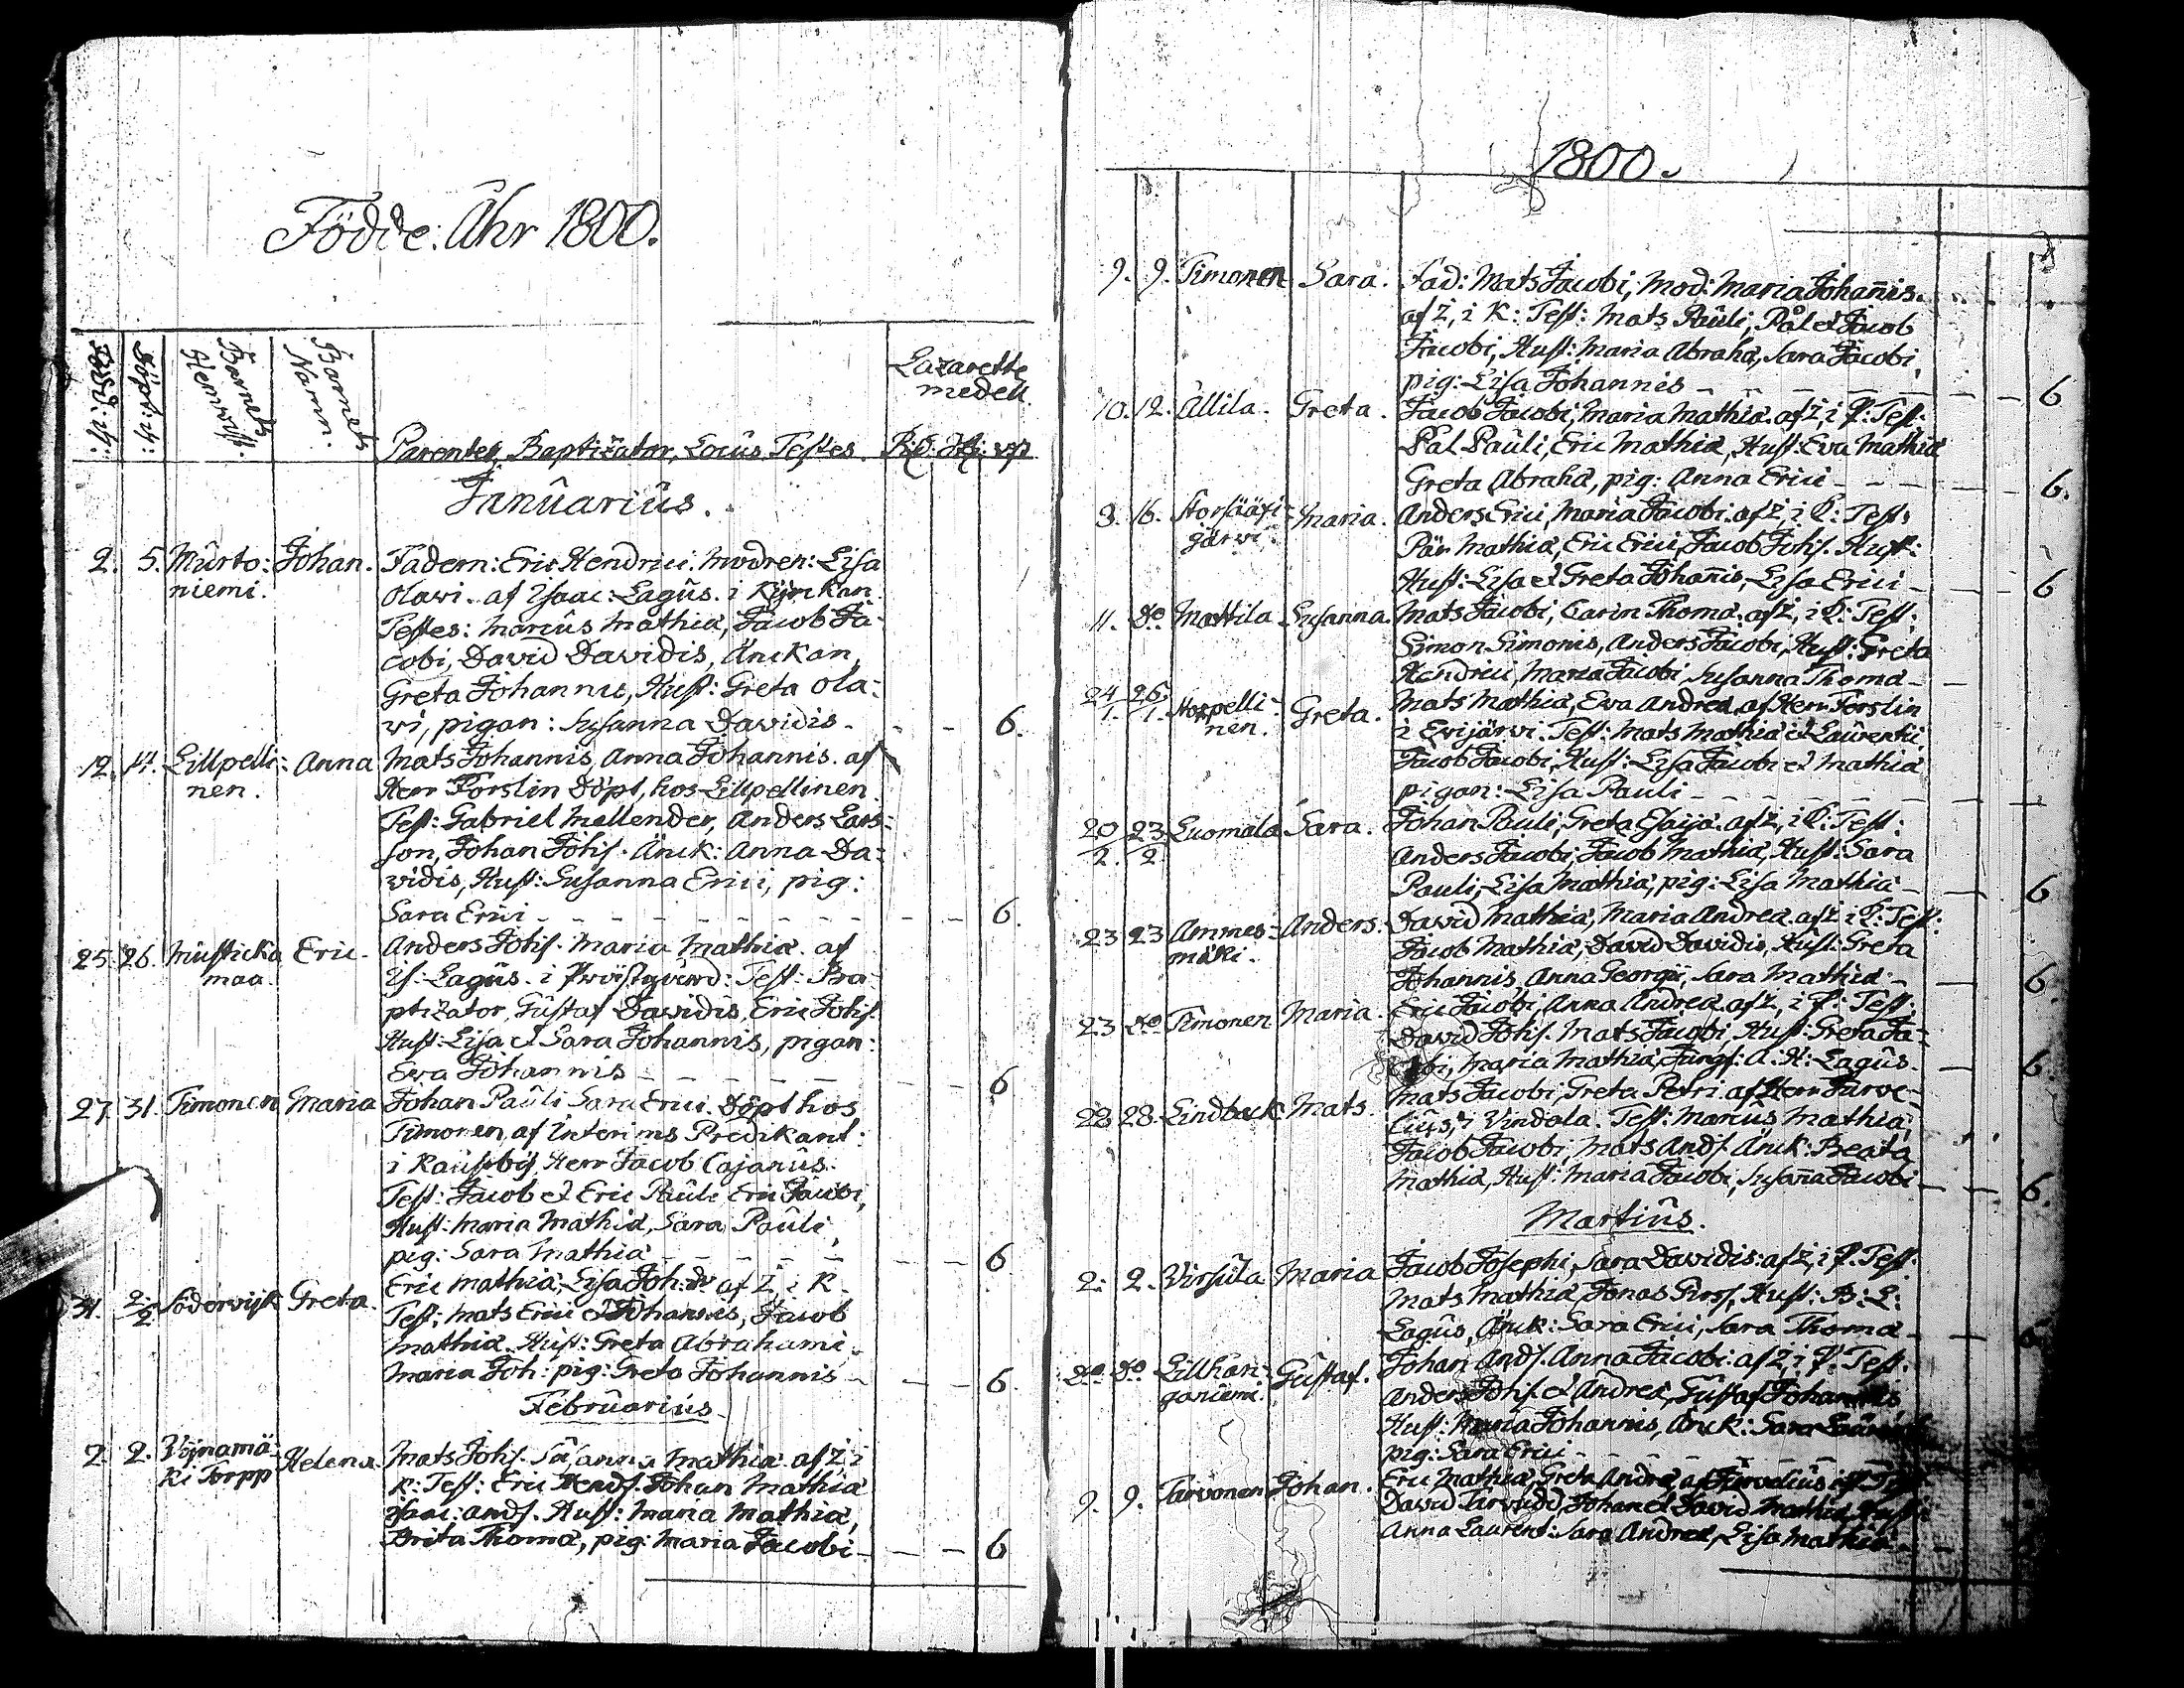 Födde: Åhr 1800.
Född: Döpt: Barnets Hemvist. Barnets Namn.
Lazaretts
medell.
Parentes, Baptizator, Locus, Testes.
Januarius.
2. 5. Murto: Johan. Fadern: Eric Hendrici. Modren: Lisa
niemi. Olavi. af Isaac: Lagus. i Kyrckan.
Testes: Marcus Mathiæ, Jacob Ja-
cobi, David Davidis, Änckan,
Greta Johannis, Hust: Greta Ola-
vi, pigan: Susanna Davidis - - - 6.
12. 14. Lillpelli: Anna Mats Johannis, Anna Johannis. af
nen. Herr Forslin Döpt, hos Lillpellinen.
Test: Gabriel Mellender, Anders Lars-
son, Johan Johs. Änck: Anna Da-
vidis, Hust: Susanna Erici, pig:
Sara Erici - - - 6.
25. 26. Musticka Eric. Anders Johs. Maria Mathiæ. af
maa. Is: Lagus. i Prästgård: Test: Ba-
ptizator, Gustaf Davidis, Eric Johs.
Hust: Lisa et Sara Johannis, pigan:
Eva Johannis - - - 6
27. 31. Timonen Maria Johan Pauli Sara Erici. Döpt hos
Timonen af Interims Predikant:
i Kaustby Herr Jacob Cajanus.
Test: Jacob et Eric Pauli Eric Jacobi,
Hust: Maria Mathiæ, Sara Pauli,
pig: Sara Mathiæ - - - 6
31. 2/2 Södervijk Greta. Eric Mathiæ, Lisa Joh:dr af Z, i K.
Test: Mats Erici et Johannis, Jacob
Mathiæ. Hust: Greta Abrahami.
Maria Joh: pig: Greta Johannis - - - 6.
Februarius.
2. 2. Wijnamä- Helena. Mats Johs. Susanna Mathiæ af Z i
ki Torpp K: Test: Eric Hends. Johan Mathiæ
Isaac: Ands. Hust: Maria Mathiæ,
Brita Thomæ, pig: Maria Jacobi - - - 6
1800.
9. 9. Timonen Sara. Fad: Mats Jacobi, Mod: Maria Johañis.
af Z, i K: Test: Mats Pauli, Pål et Jacob
Jacobi, Hust: Maria Abrahæ, Sara Jacobi,
pig: Lisa Johannis - - - 6
10. 12. Allila. Greta. Jacob Jacobi, Maria Mathiæ. af Z, i P: Test.
Pål Pauli, Eric Mathiæ, Hust: Eva Mathiæ
Greta Abrahæ, pig: Anna Erici - - - 6.
16. Maria. Anders Erici, Maria Jacobi. af Z, i P: Test:
järvi. Pär Mathiæ, Eric Erici, Jacob Johs. Hust:
Hust: Lisa et Greta Johañis, Lisa Erici - - - 6
11. Do Mattila Susanna. Mats Jacobi, Carin Thomæ. af Z, i P: Test:
Simon Simonis, Anders Jacobi, Hust: Greta
Hendrici, Maria Jacobi Susanna Thomæ - -
24/1. 26/1. Noppelli- Greta. Mats Mathiæ, Eva Andreæ. af Herr Forslin
nen. i Evijärvi. Test: Mats Mathiæ et Laurentii,
Jacob Jacobi, Hust: Lisa Jacobi et Mathiæ
pigan: Lisa Pauli - - -
20/2. 23/2 Luomala Sara. Johan Pauli, Greta Esaiæ. af Z, i P: Test:
Anders Jacobi, Jacob Mathiæ, Hust: Sara
Pauli, Lisa Mathiæ, pig: Lisa Mathiæ - - 6
23 23 Ammes- Anders. David Mathiæ, Maria Andreæ. af Z i P: Test:
mäki. Jacob Mathiæ, David Davidis, Hust: Greta
Johannis, Anna Georgii, Sara Mathiæ - - 6
23 Do Timonen Maria. Eric Jacobi, Anna Andreæ. af Z, i P: Test.
David Johs. Mats Jacobi, Hust: Greta Ja-
cobi, Maria Mathiæ, Jungf: A: H: Lagus. - 6.
28 28. Lindback Mats. Mats Jacobi, Greta Petri. af Herr Turve-
lius, i Vindala. Test: Marcus Mathiæ,
Jacob Jacobi, Mats Ands. Änck: Beata
Mathiæ, Hust: Maria Jacobi, Susaña Jacobi - - 6.
Martius.
2. 2. Virsula Maria Jacob Josephi, Sara Davidis: af Z, i P. Test:
Mats Mathiæ Jonas Hust: B: L:
Lagus, Änck: Sara Erici, Sara Thomæ - - 6
Do Do Lillhari- Gustaf. Johan Ands. Anna Jacobi: af Z, i P. Test.
Anders Johs. et Andreæ, Gustaf Johannis
Hust: Maria Johannis, Änck: Sara
pig: Sara Erici - - -
9. 9. Tarvonen Johan. Eric Mathiæ, Greta Andreæ, af Turvelius
David Johan et David Mathiæ
Anna Laurent: Sara Andreæ, Lisa Mathiæ - -